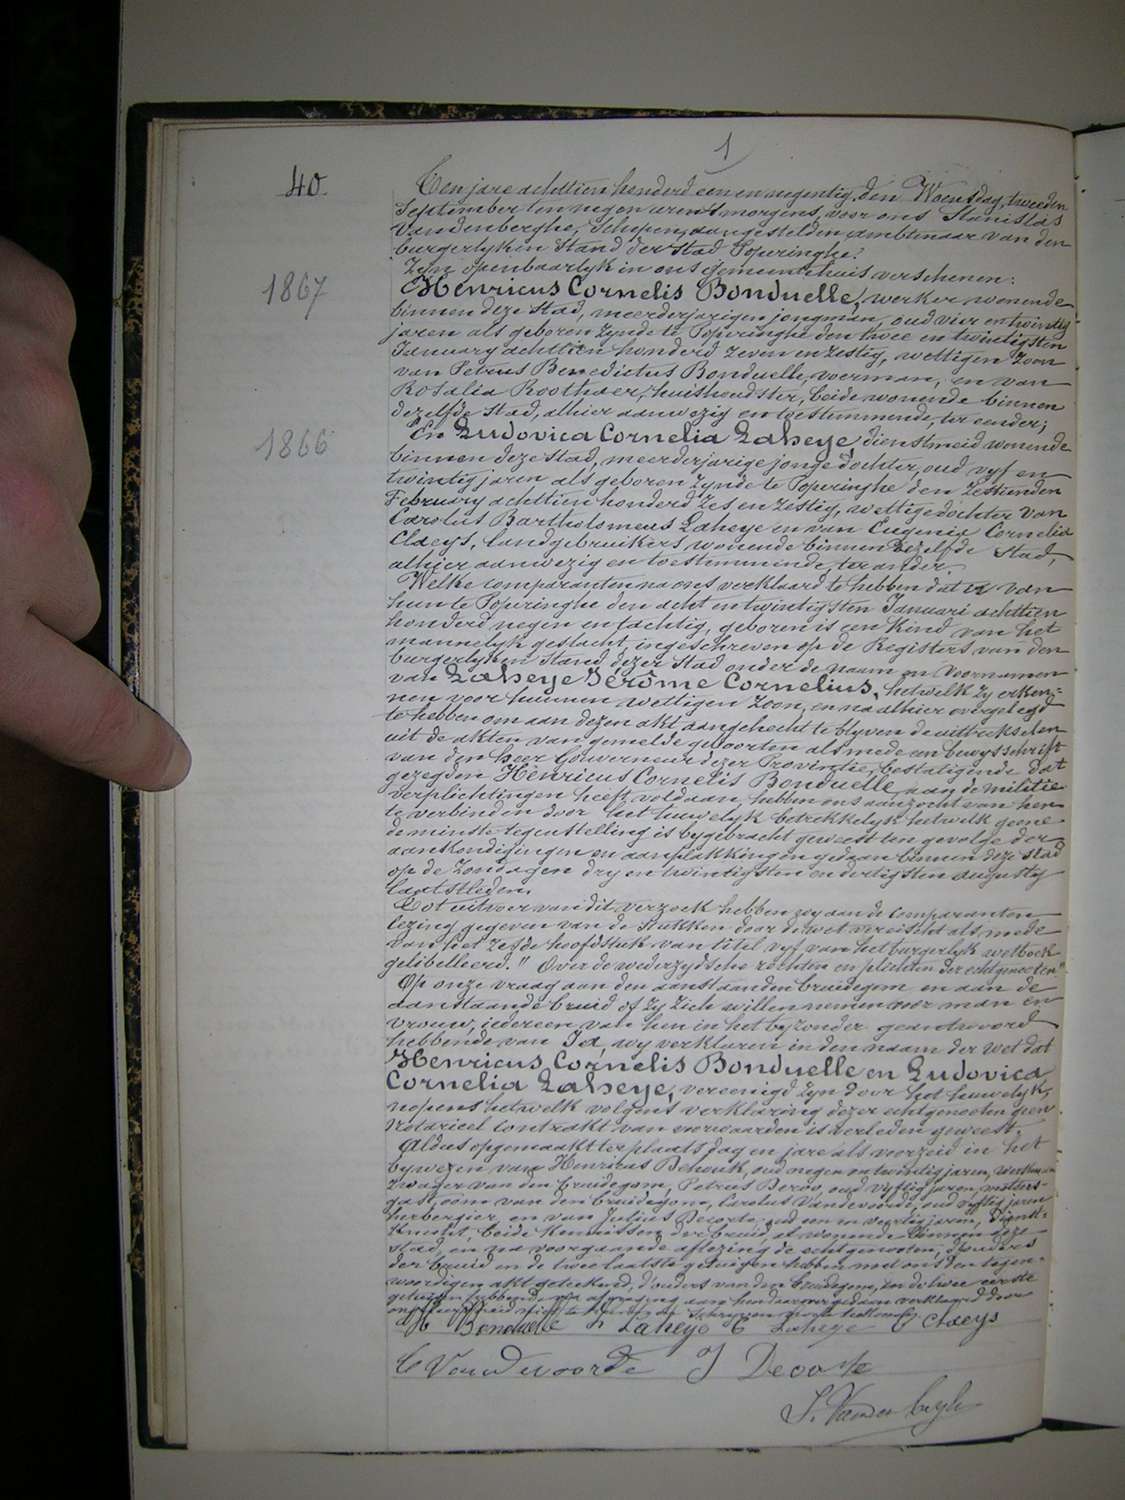 1
40.
Ten jare achttien honderd een en negentig, den Woensdag, tweeden
September ten negen uren 's morgens, voor ons Stanislas
Vandenberghe, Schepen, aangestelden ambtenaar van den
burgerlyken Stand der Stad Poperinghe.
Zyn openbaarlyk in ons gemeentehuis verschenen:
1867
Henricus Cornelis Bonduelle, werker wonende
binnen deze Stad, meerderjarigen jongman, oud vier en twintig
jaren als geboren zynde te Poperinghe den twee en twintigsten
January achttien honderd zeven en zestig, wettigen zoon
van Petrus Benedictus Bonduelle, voerman, en van
Rosalia Roothaer, huishoudster, beide wonende binnen
dezelfde Stad, alhier aanwezig en toestemmende, ter eender;
1866
En Ludovica Cornelia Laheye, dienstmeid wonende
binnen deze stad, meerderjarige jonge dochter, oud vyf en
twintig jaren als geboren zynde te Poperinghe den zestienden
February achttien honderd zes en zestig, wettige dochter van
Carolus Bartholomeus Laheye en van Eugenia Cornelia
Claeys, landgebruikers wonende binnen dezelfde Stad,
alhier aanwezig en toestemmende, ter ander.
Welke comparanten na ons verklaard te hebben dat er van
hun te Poperinghe den acht en twintigsten Januari achttien
honderd negen en tachtig, geboren is een kind van het
mannelyk geslacht, ingeschreven op de Registers van den
burgerlyken Stand dezer Stad onder de naam en voornamen
van Laheye Jérôme Cornelius, hetwelk zy erken=
nen voor hunnen wettigen zoon, en na alhier overgelegd
te hebben om aan dezen akt aangehecht te blyven de uittrekselen
uit de akten van gemelde geboorten alsmede een bewysschrift
van den heer Gouverneur dezer Provintie, bestatigende dat
gezegden Henricus Cornelis Bonduelle aan de militie
verplichtingen heeft voldaan, hebben ons aanzocht van hen
te verbinden door het huwelyk betrekkelyk hetwelk geene
de minste tegenstelling is bygebracht geweest ten gevolge der
aankondigingen en aanplakkingen gedaan binnen deze stad
op de Zondagen dry en twintigsten en dertigsten augusty
laatstleden.
Tot uitvoer van dit verzoek hebben wy aan de comparanten
lezing gegeven van de stukken door de wet vereischt alsmede
van het zesde hoofdstuk van titel vyf van het burgerlyk wetboek
gelibelleerd: "Over de wederzydsche rechten en plichten der echtgenooten"
Op onze vraag aan den aanstaanden bruidegom en aan de
aanstaande bruid of zy zich willen nemen voor man en
vrouw, iedereen van hen in het byzonder geantwoord
hebbende van Ja, wy verklaren in den naam der wet dat
Henricus Cornelis Bonduelle en Ludovica
Cornelia Laheye, vereenigd zyn door het huwelyk,
nopens hetwelk volgens verklaring dezer echtgenooten geen
notarieel contrakt van voorwaarden is verleden geweest.
Aldus opgemaakt ter plaats dag en jare als voorzeid in het
bywezen van Henricus Behouk, oud negen en twintig jaren, werkman
zwager van den bruidegom, Petrus oud vyftig jaren,
oom van den bruidegom, Carolus Vandevoorde, oud vyftig jaren
herbergier en van Julius Decorte, oud een en veertig jaren, dienst=
knecht, beide kennissen der bruid, al wonende binnen deze
stad, en na voorgaande aflezing de echtgenooten, d'ouders
der bruid en de twee laatste getuigen hebben met ons den tegen=
woordigen akt geteekend, d'ouders van den bruidegom, en de twee eerste
getuigen hebbende na afvraging aan hen daarover gedaan verklaard door
ongeleerdheid niet te kunnen schryven
H Bonduelle L Laheye C Laheye E Claeys
C Vandevoorde J Decorte
S. Vandenberghe